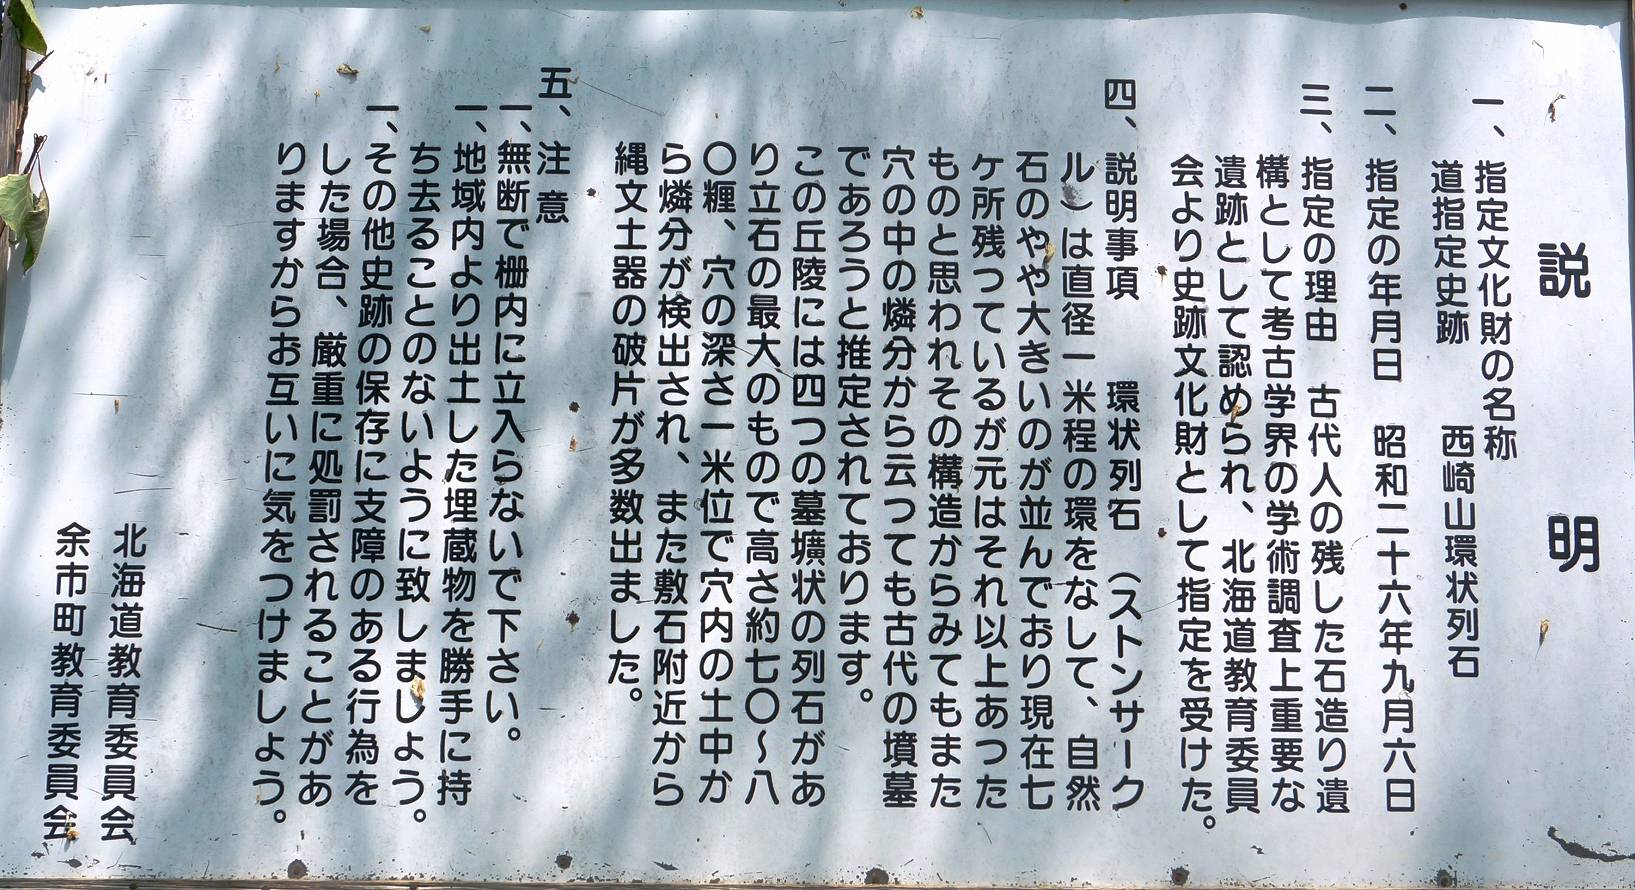 説明
一、指定文化財の名称
道指定史跡　西崎山環状列石
二、指定の年月日　昭和二十六年九月六日
三、指定の理由　古代人の残した石造り遺
構として考古学界の学術調査上重要な
遺跡として認められ、北海道教育委員
会より史跡文化財として指定を受けた。
四、説明事項　環状列石　（ストンサーク
ル）は直径一米程の環をなして、自然
石のやや大きいのが並んでおり現在七
ケ所残つているが元はそれ以上あつた
ものと思われその構造からみてもまた
穴の中の燐分から云つても古代の墳墓
であろうと推定されております。
この丘陵には四つの墓壙状の列石があ
り立石の最大のもので高さ約七〇～八
〇糎、穴の深さ一米位で穴内の土中か
ら燐分が検出され、また敷石附近から
縄文土器の破片が多数出ました。
五、注意
一、無断で柵内に立入らないで下さい。
一、地域内より出土した埋蔵物を勝手に持
ち去ることのないように致しましよう。
一、その他史跡の保存に支障のある行為を
した場合、厳重に処罰されることがあ
りますからお互いに気をつけましよう。
北海道教育委員会
余市町教育委員会